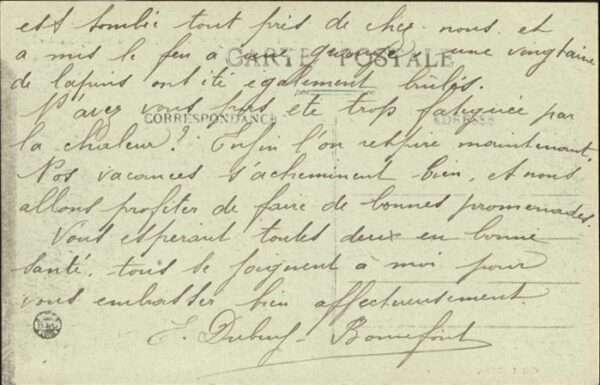 est tombée tout près de chez nous et
a mis le feu à une grange une vingtaine
CARTE POSTALE
de lapins ont été également brûlés.
N'avez vous pas été trop fatiguée par
CORRESPONDANCE
ADRESSE
la chaleur? Enfin l'on respire maintenant.
Nos vacances s'acheminent bien, et nous
allons profiter de faire de bonnes promenades.
Vous espérant toutes deux en bonne
santé. tous se joignent à moi pour
vous embrasser bien affectueusement.
E. Bonnefont